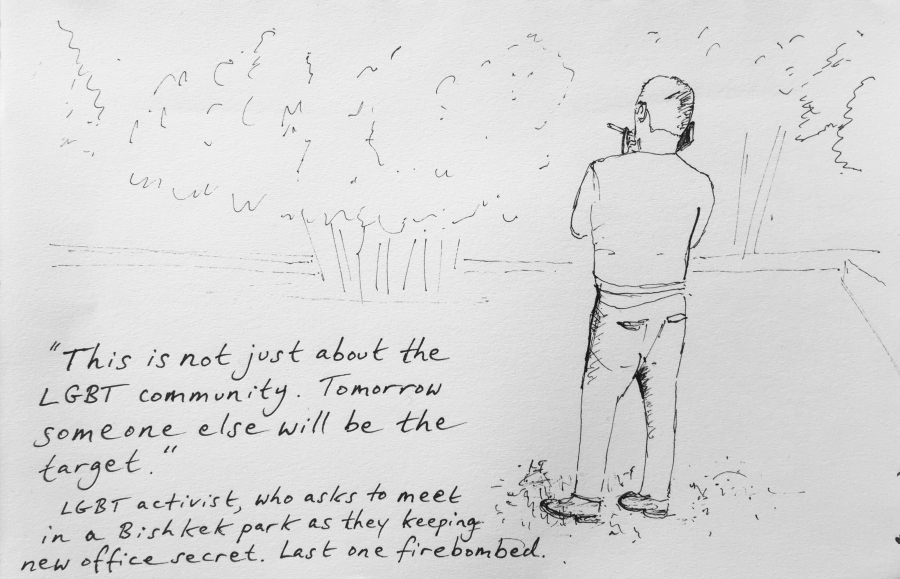 "This is not just about the
LGBT community. Tomorrow
someone else will be the
target."
LGBT activist, who asks to meet
in a Bishkek park as they keeping
new office secret. Last one firebombed.